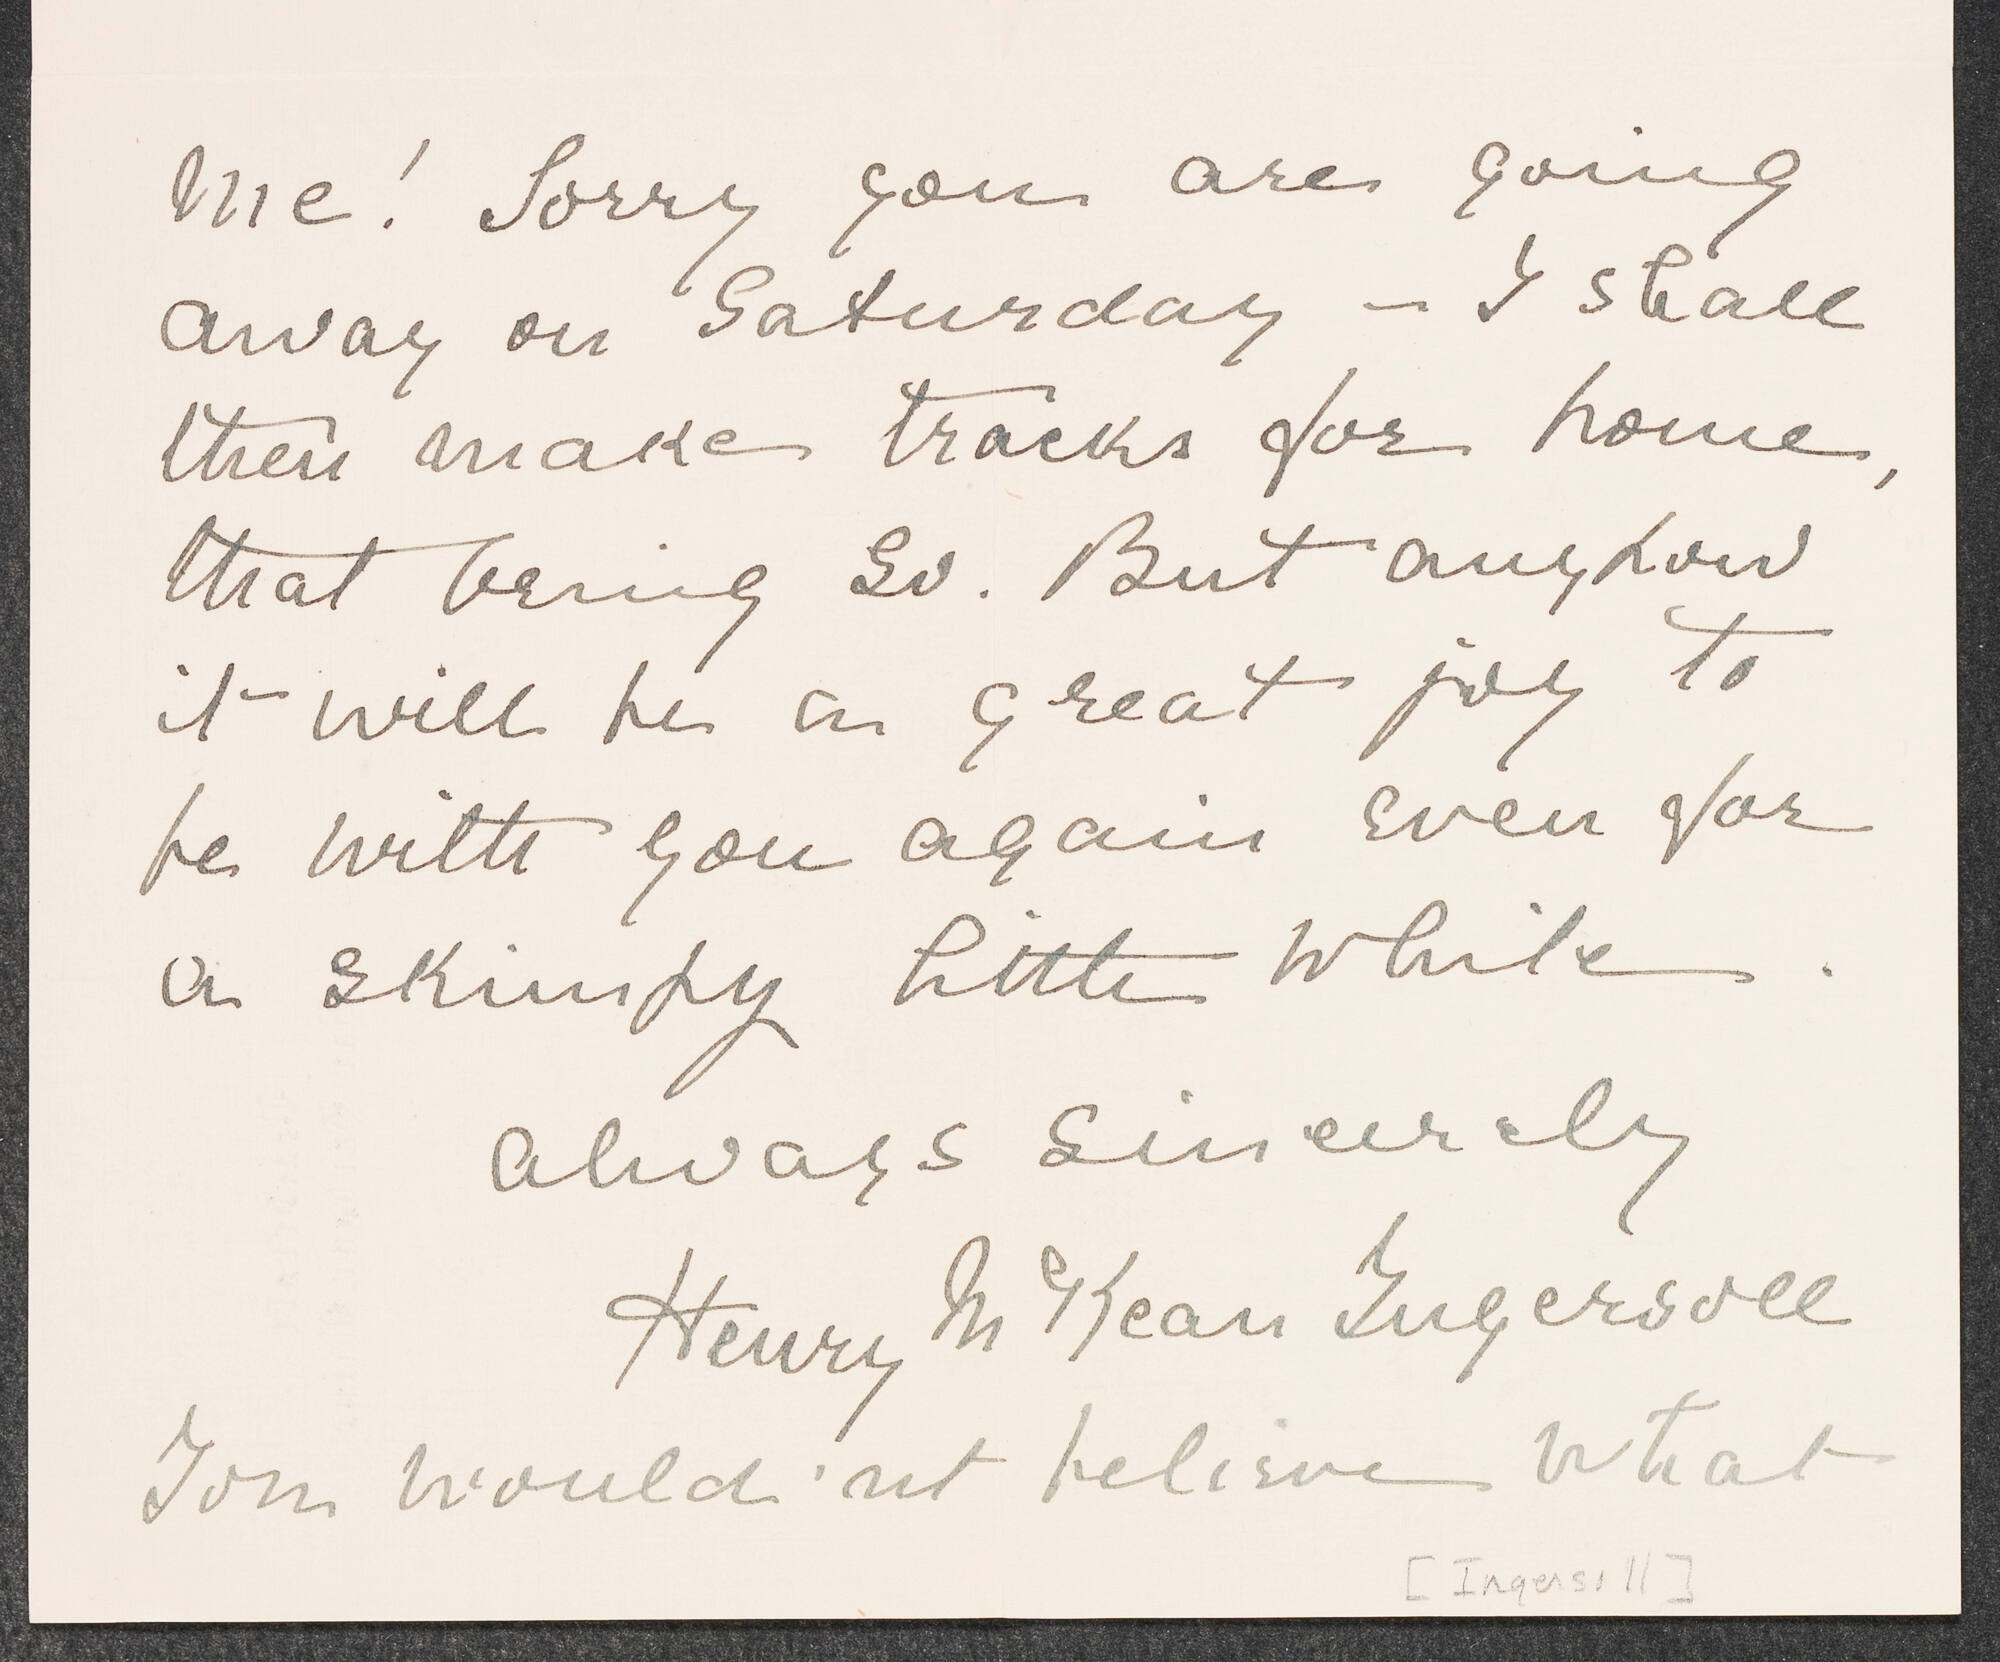 Me! Sorry you are going
away on Saturday – I shall
then make tracks for home,
that being so. But anyhow
it will be a great joy to
be with you again even for
a skimpy little while.
Always sincerely
Henry McKean Ingersoll
You would'nt believe what
[Ingersoll]